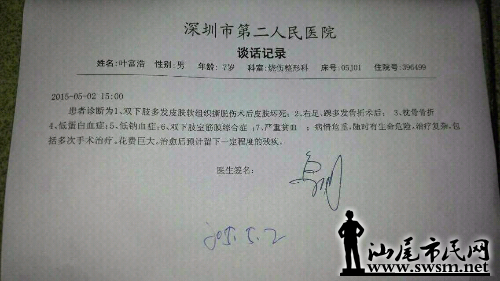 深圳市第二人民医院
谈话记录
姓名:叶富浩 性别:男 年龄: 7岁 科室:烧伤整形科 床号:05J01 住院号:396499
2015-05-02 15:00
患者诊断为1、双下肢多发皮肤软组织撕脱伤术后皮肤坏死; 2、右足、踝多发骨折术后; 3、骨折
4、低蛋白血症; 5、低钠血症; 6、双下肢室筋膜综合症; 7、严重贫血 ; 病情危重, 随时有生命危险, 治疗复杂, 包
括多次手术治疗, 花费巨大, 治愈后预计留下一定程度的残疾。
医生签名:
2015.5.2
汕尾市民网
www.swsm.net